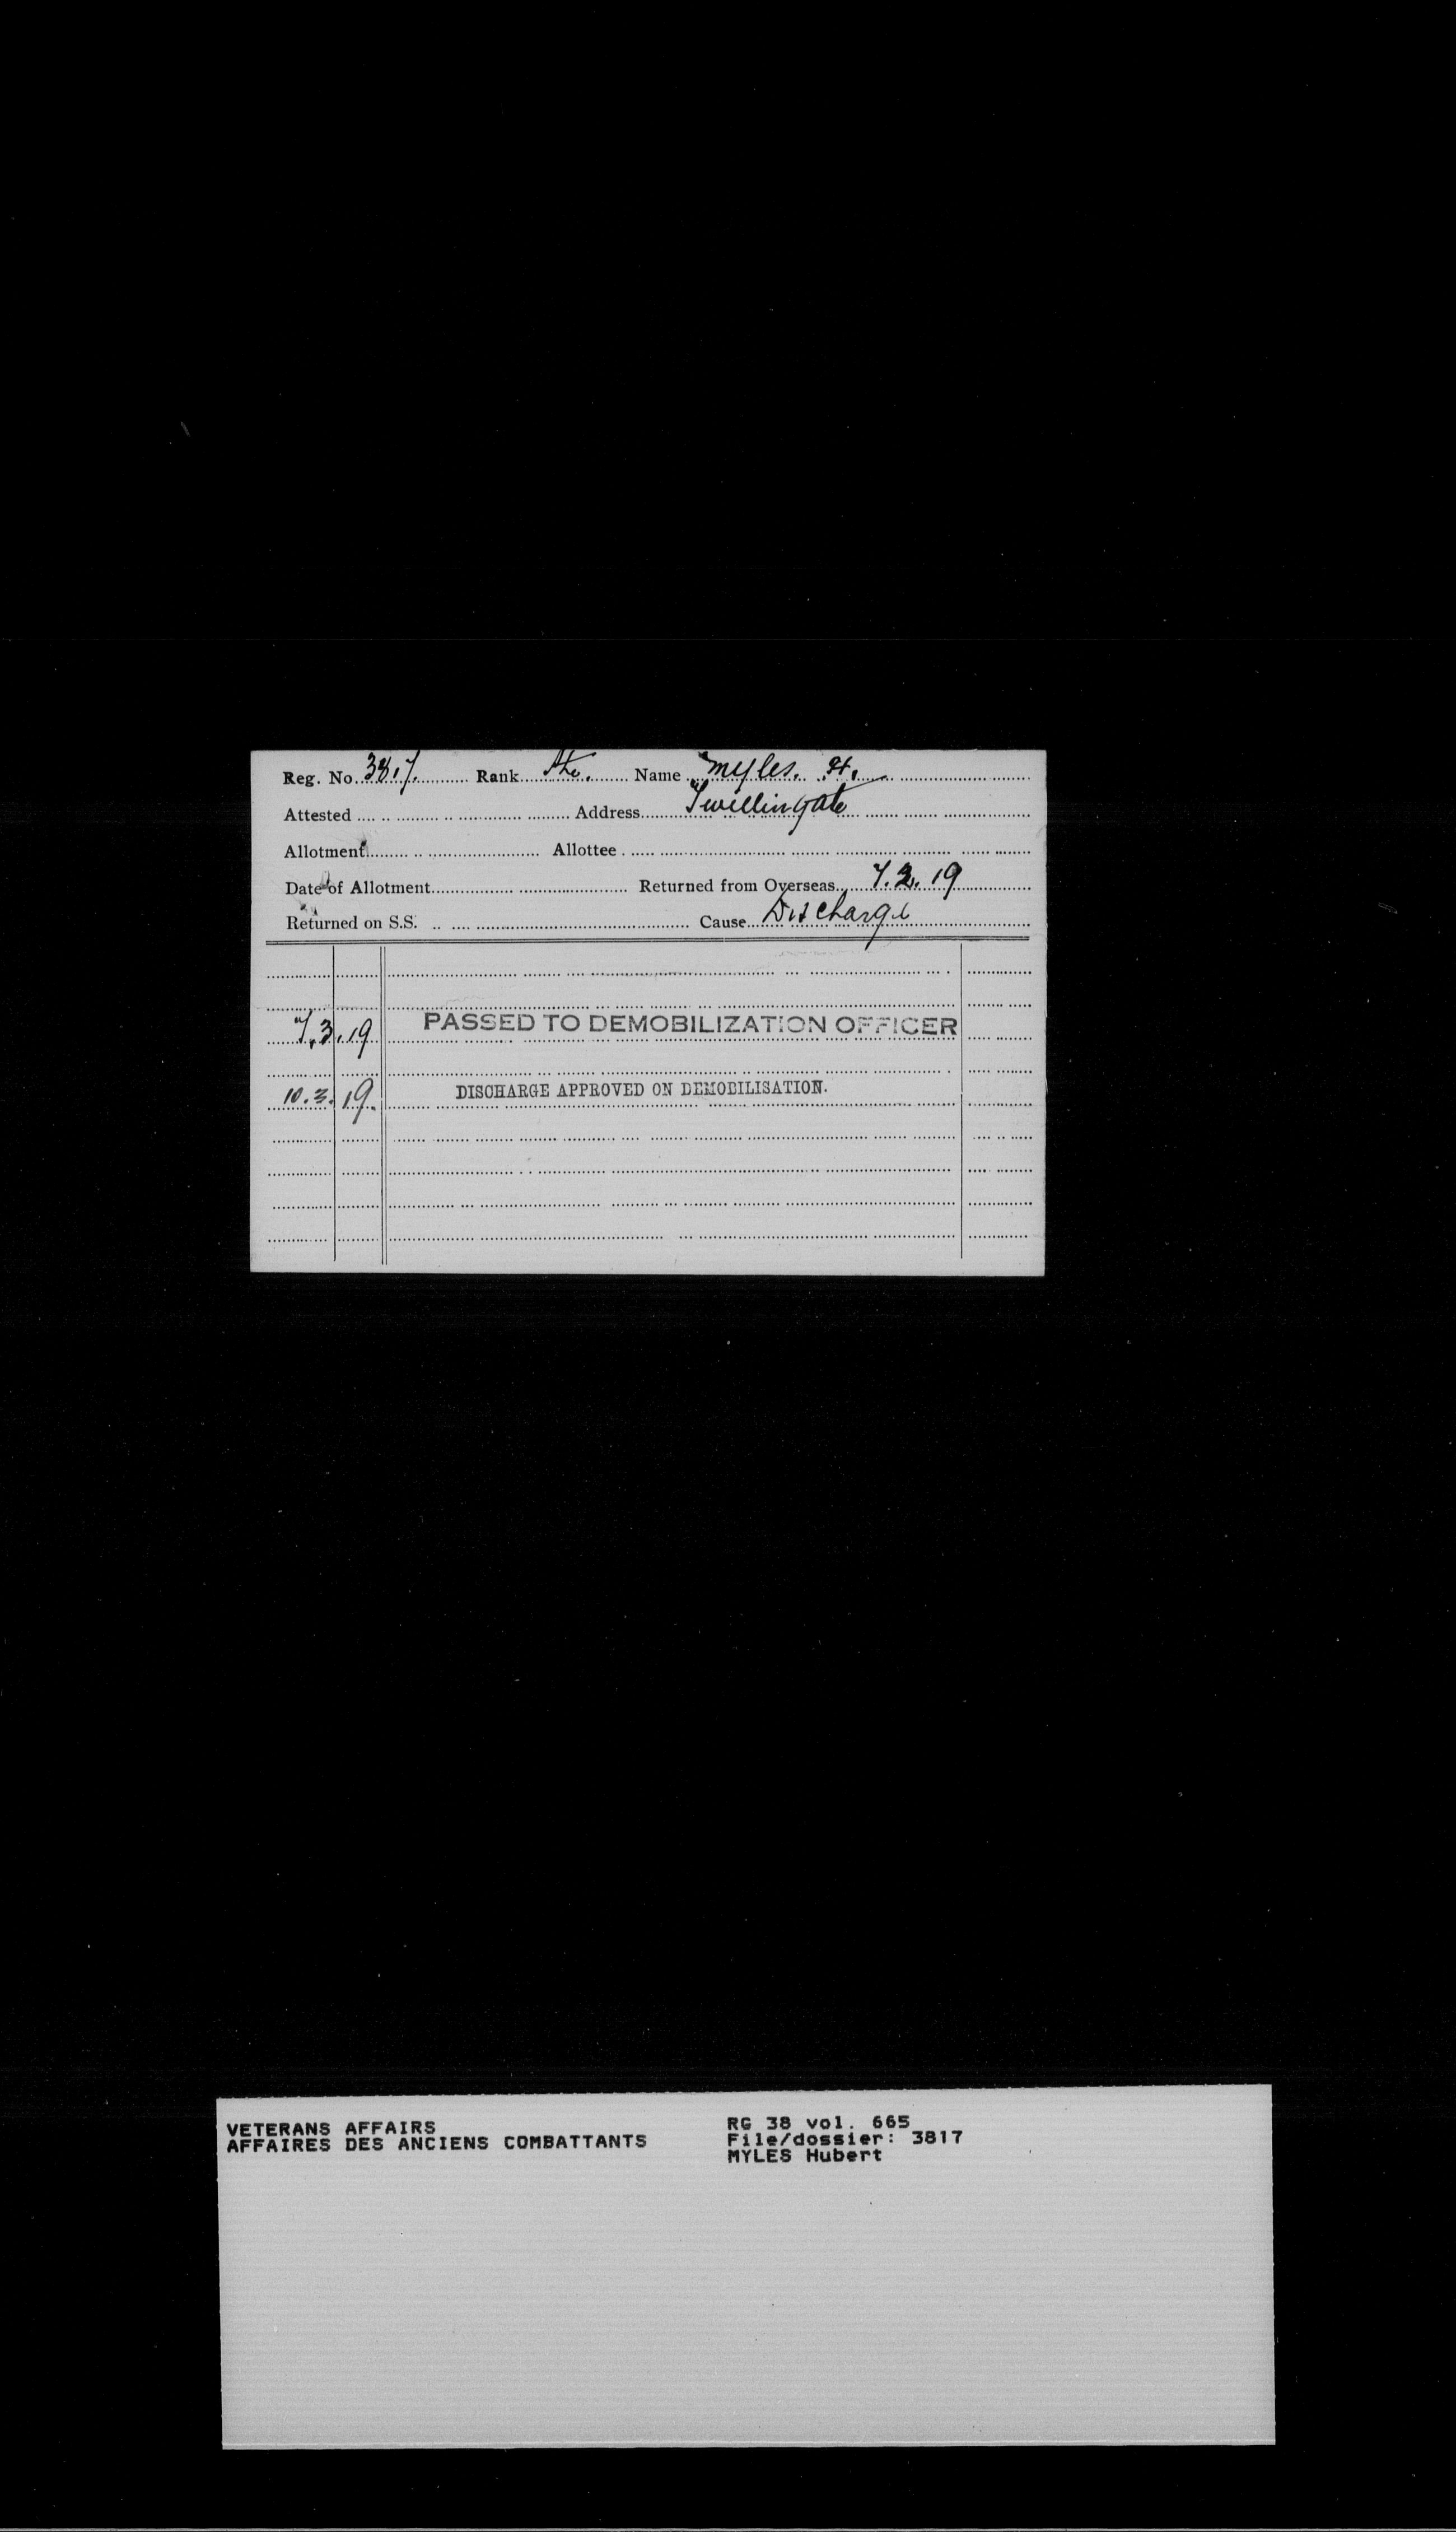 Reg. No. 3817. Rank Pte. Name Myles. H.
Attested Address Twillingate
Allotment Allottee
Date of Allotment Returned from Overseas 7.2.19
Returned on S.S. Cause Discharge
7.3.19 PASSED TO DEMOBILIZATION OFFICER
10.3.19. DISCHARGE APPROVED ON DEMOBILISATION.
VETERANS AFFAIRS RG 38 vol. 665
AFFAIRES DES ANCIENS COMBATTANTS File/dossier: 3817
MYLES Hubert